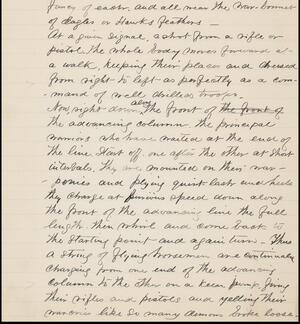 fancy of easter, and all near the war-bonnet
of Eagles or Hawks Feathers —
At a given signal, a shot from a rifle or
pistol. The whole body moves forward at
a walk, keeping their places and dressed
from right to left as perfectly as a com-
mand of well drilled troops.
Now, right down along the front of the front of
the advancing column, the principal
warriors who have waited at the end of
the line start off, one after the other at short
intervals. They are mounted on their war-
ponies and plying quirt lash and heels
they charge at furious speed down along
the front of the advancing line the full
length, then whirl and come back to
the starting point and again turn — Thus
a string of flying horsemen are continually
charging from one end of the advancing
column to the other on a keen jump, firing
their rifles and pistols and yelling their
warcries like so many demons broke loose.